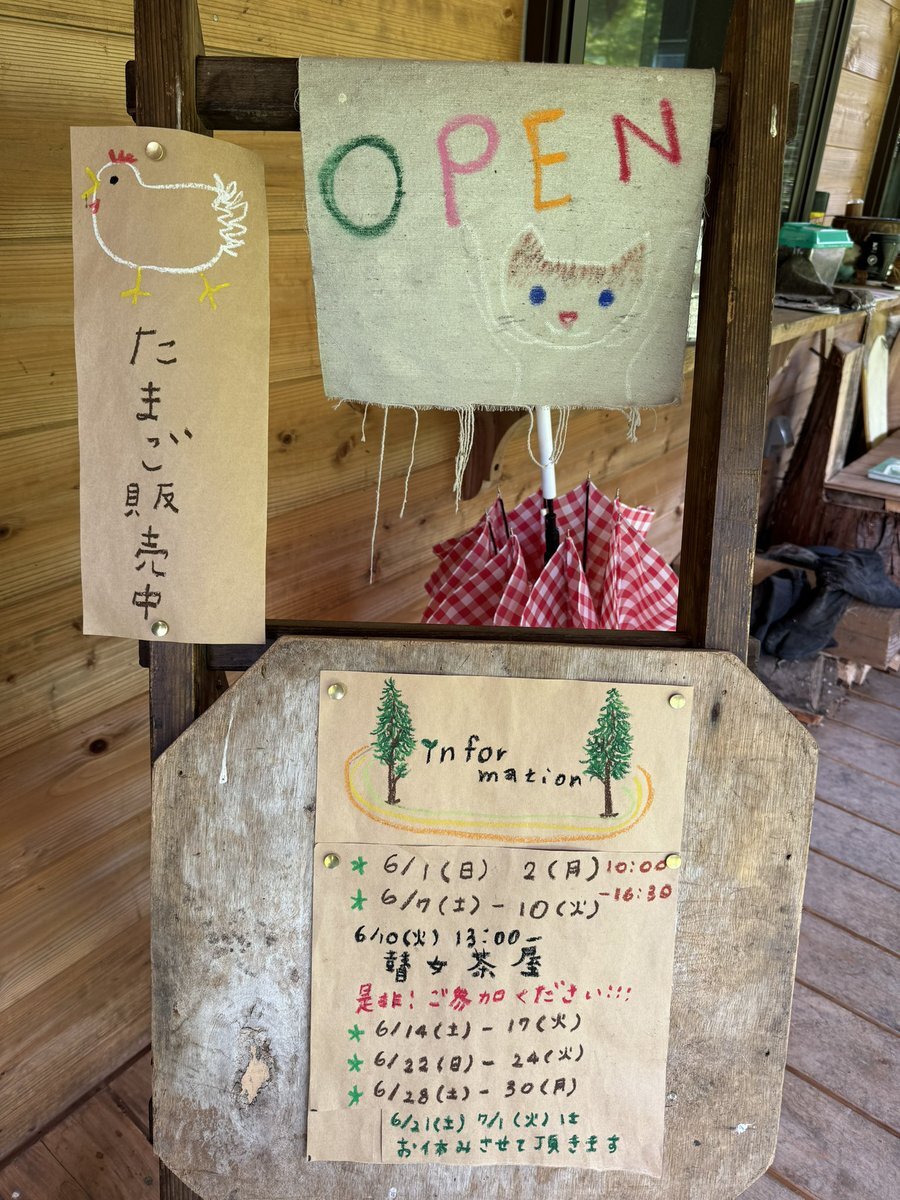 OPEN
たまご販売中
infor
mation
* 6/1(日) 2(月) 10:00
* 6/7(土)-10(火) -16:30
6/10(火) 13:00-
瞽女茶屋
是非！ご参加ください!!!
* 6/14(土)-17(火)
* 6/22(日)-24(火)
* 6/28(土)-30(月)
6/21(土) 7/1(火)は
お休みさせて頂きます